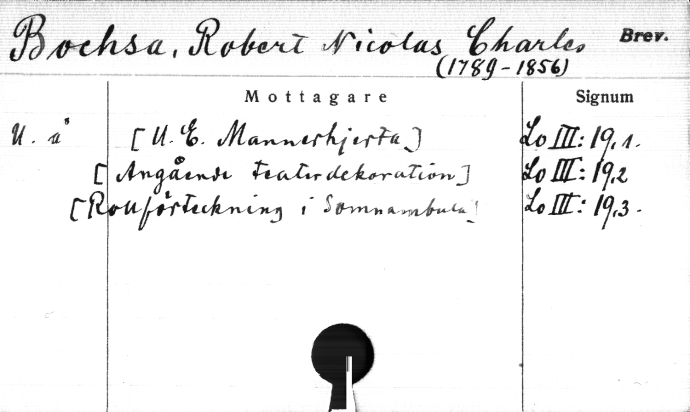 Bochsa, Robert Nicolas Charles Brev.
(1789-1856)
Mottagare Signum
U. å [U. E. Mannerhjerta] Lo III: 19,1.
[Angående teaterdekoration] Lo III: 19,2
[Rollförteckning i Somnambula] Lo III: 19,3.